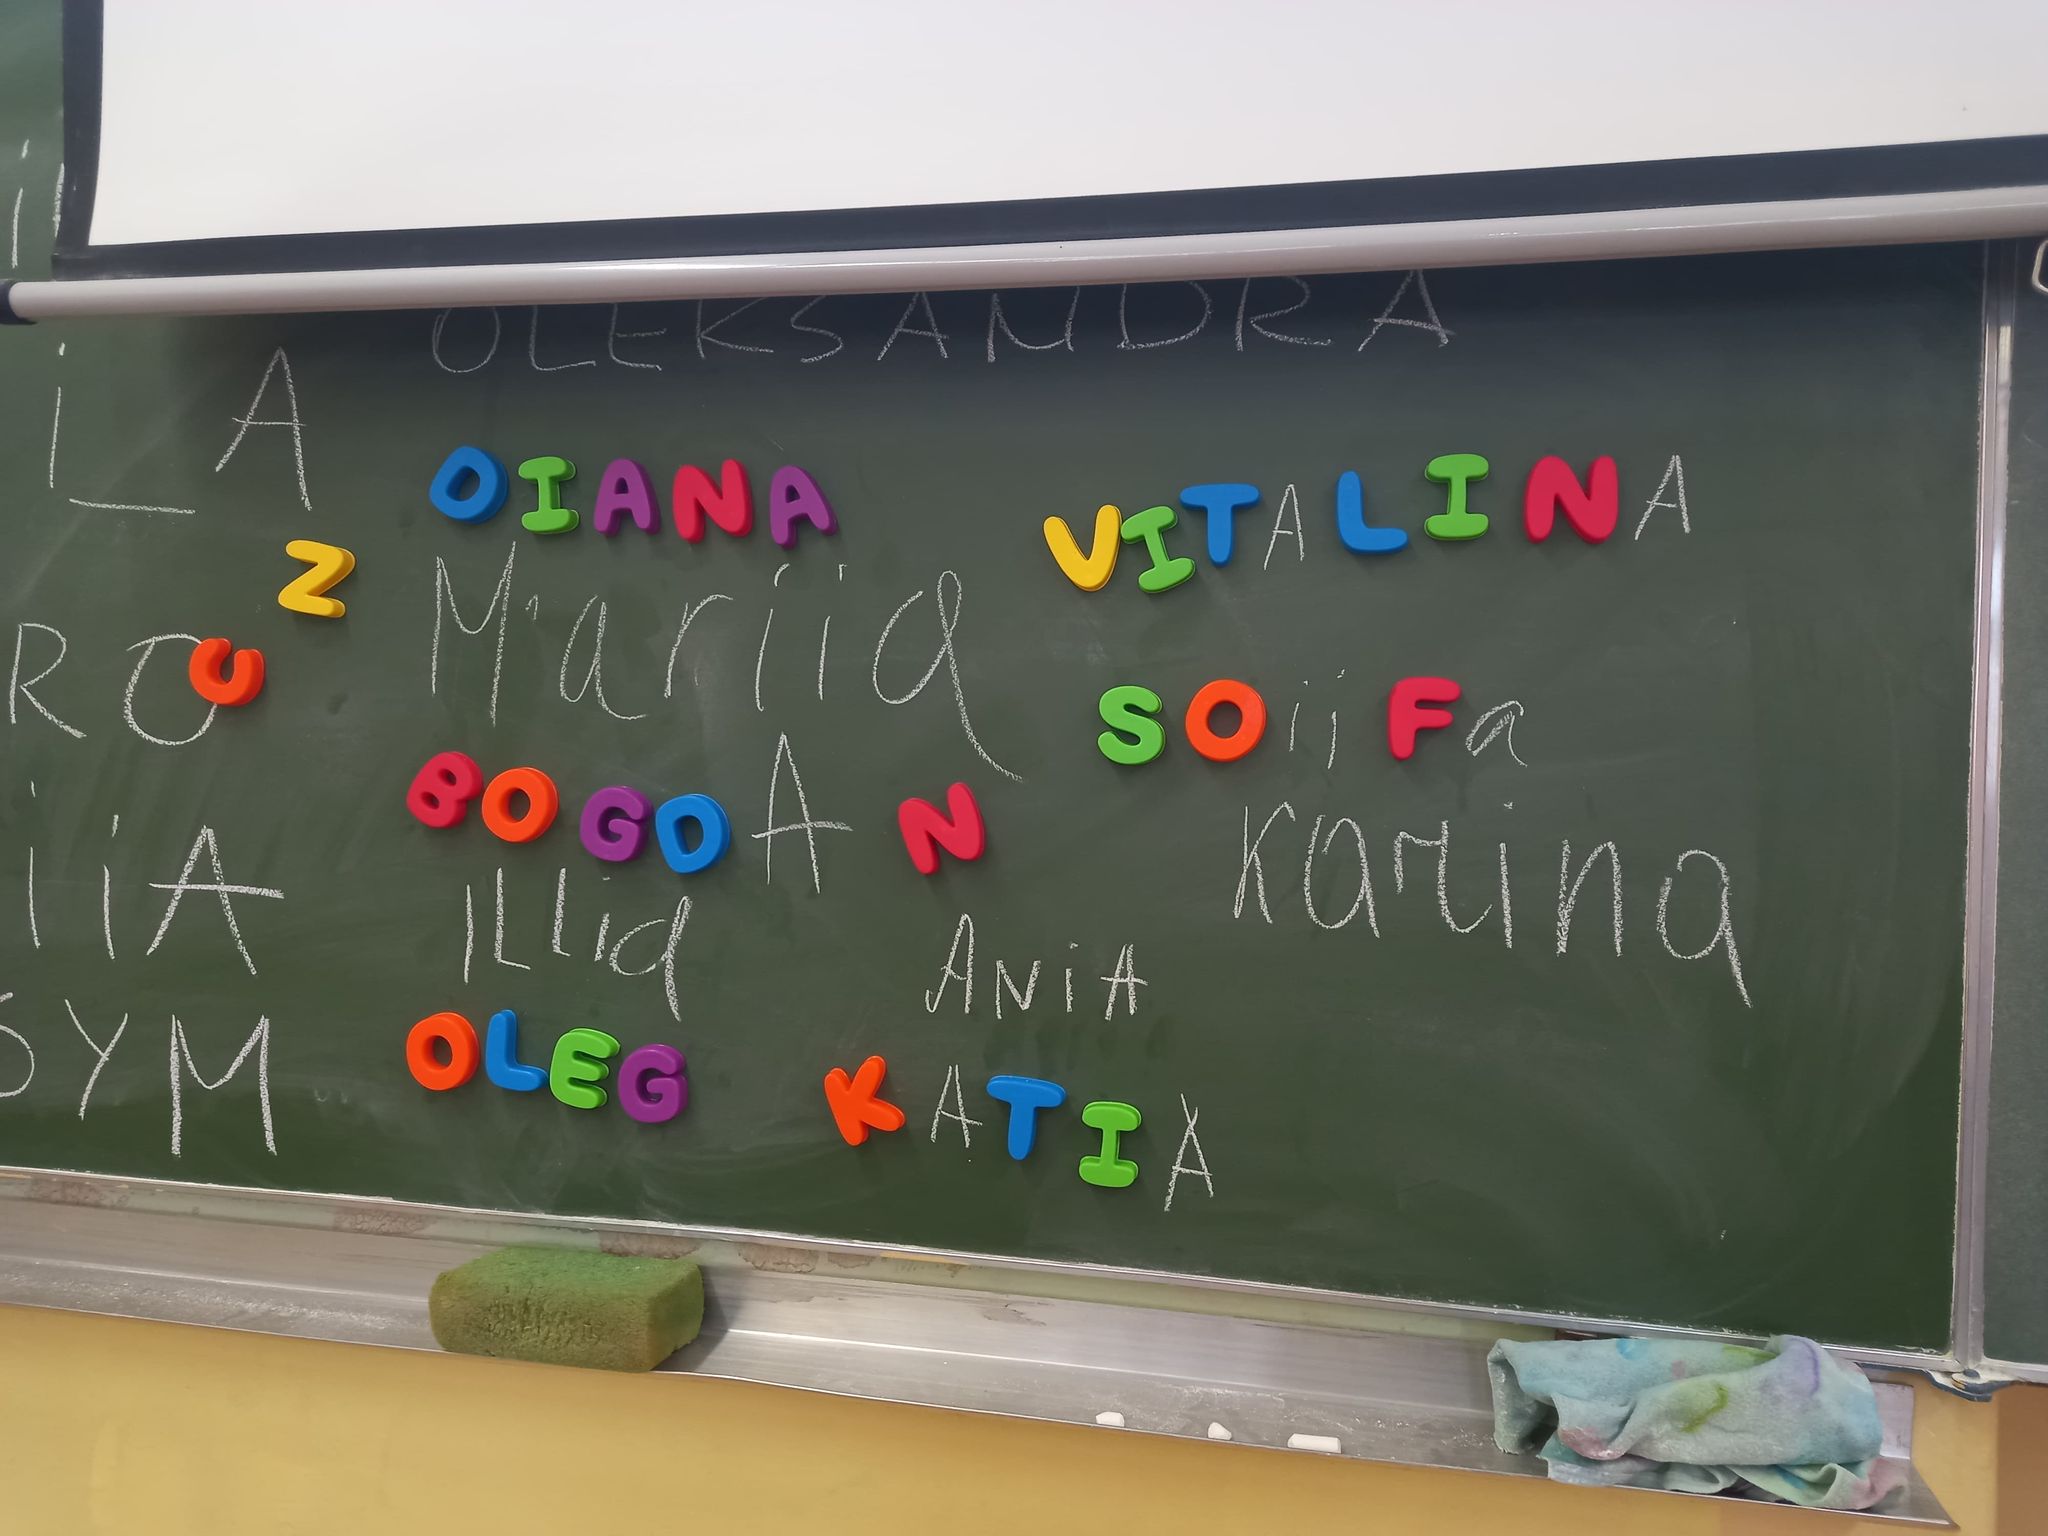 OLEKSANDRA
LA
DIANA
VITALINA
Z
Mariia
RO
U
SOiiFa
BOGDAN
Karina
iiA
ILLia
ANiA
YM
OLEG
KATIA